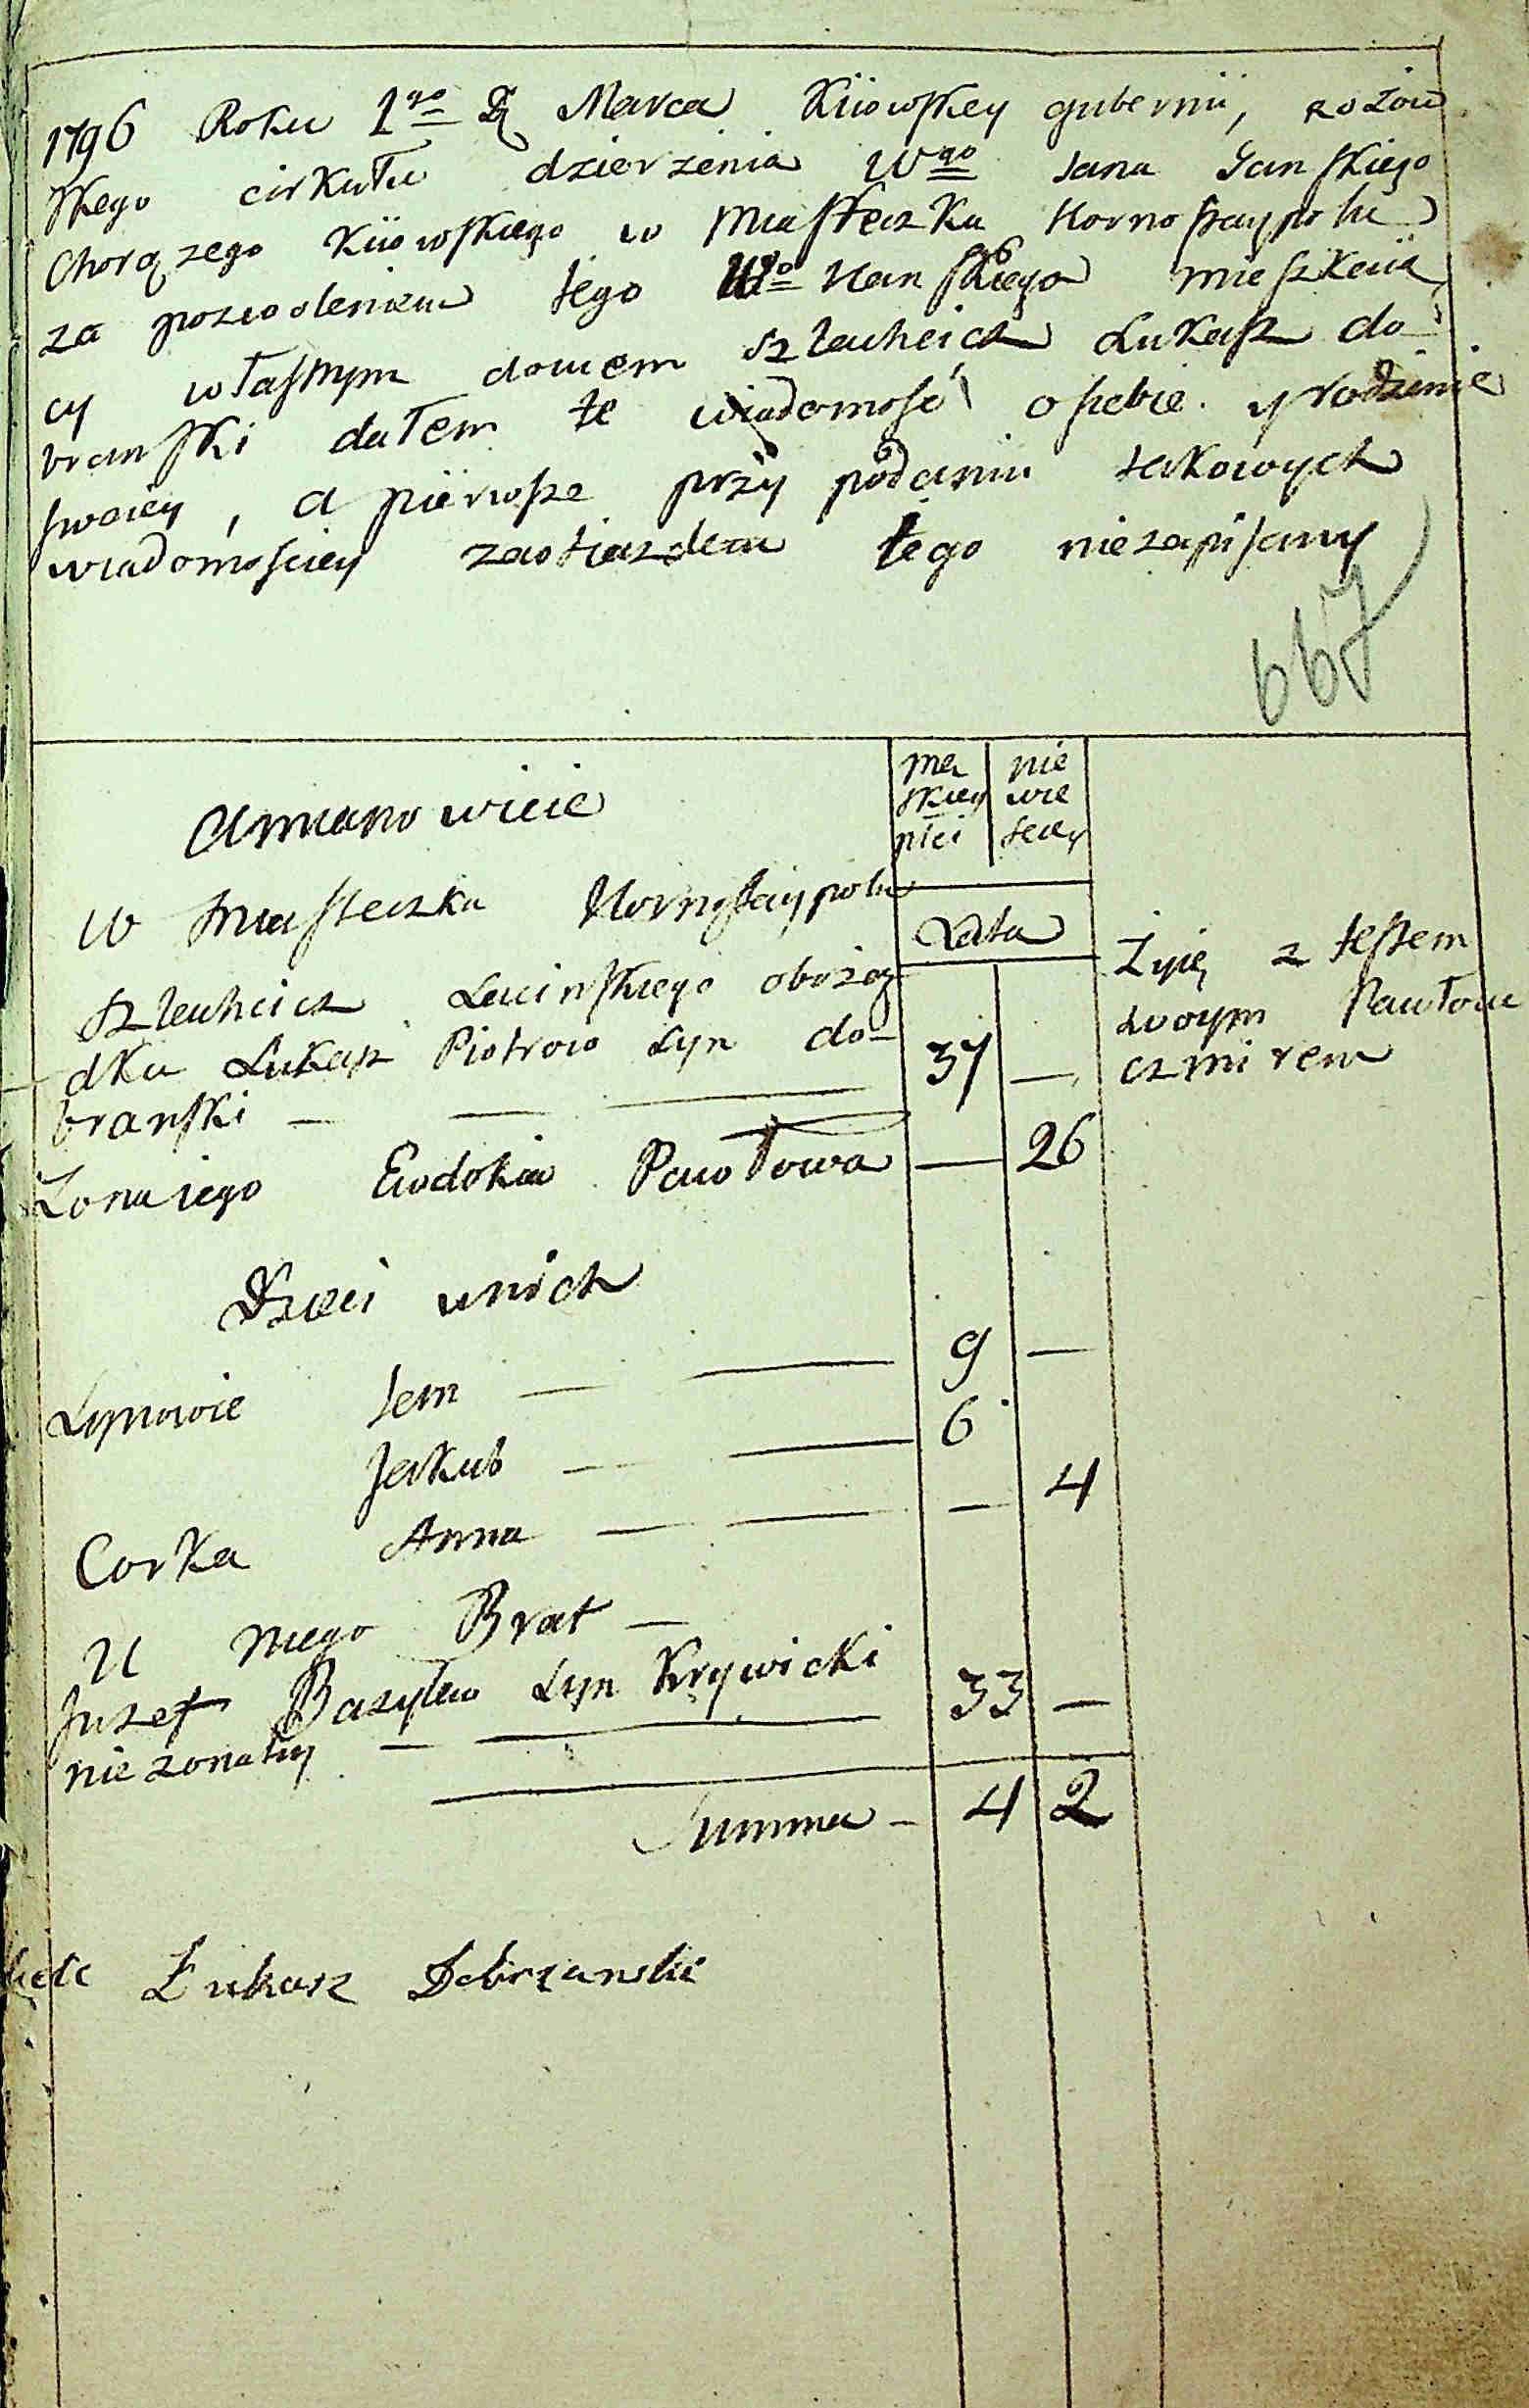 1796 Roku 1go Marca Kiiowskey gubernii, rożow
skego cirkułu dzierzenia Wgo Jana Hanskiego
Chorązego Kiiowskiego w Miasteczku Hornostaypolu
za pozwoleniem tego Wgo Hanskiego mieszkaią
cy własnym domem szlachcicz Łukasz do
branski dałem te wiadomość o siebie y rodzinie
swoiey, a pierwsze przy podaniu takowych
wiadomosciey za otiazdem tego niezapisany
667
Amianowicie
męskiey płci
niewiesciey
W miasteczku Hornostaypolu
Lata
szlachcicz Lucinskiego obożo
dku Łukasz Piotrow syn do-
branski — — — 37 —
Żyię z testem
swoym Pawłom
czmirem
Zona iego Ewdokia Pawłowa — 26
Dzieci unich
Synowie Jan — — 9 —
Jakub — — 6
Corka Anna — — — 4
U niego Brat —
Juzef Basylew syn Krywicki
nie zonaty — — 33 —
Summa — 4 2
Łukasz Dobrzanski